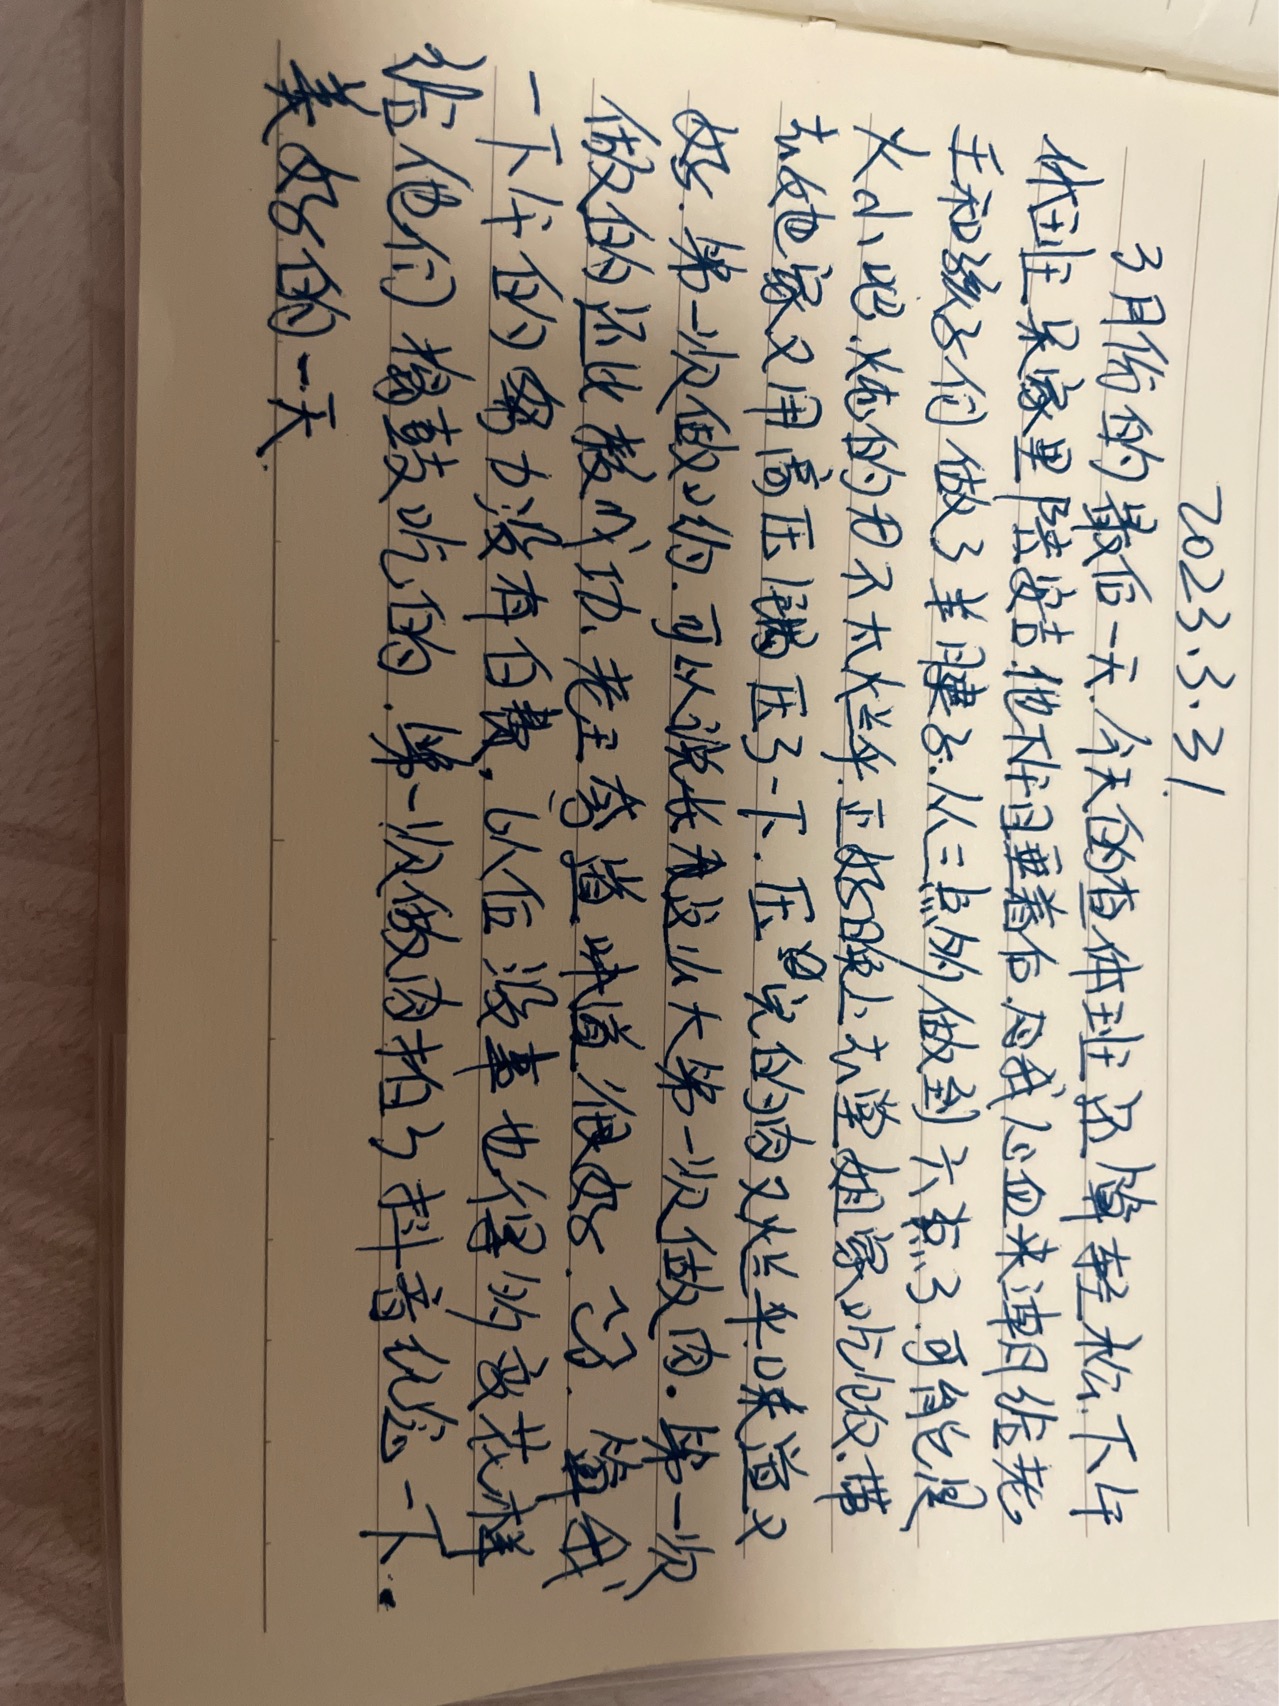 2023.3.31
3月份的最后一天.今天的查体班还算轻松.下午
休班呆家里陪安喆.他下午自垂着后.后我心血来潮给老
王和孩子们做了羊腰子.从三点多做到六点了.可能没
火小吧.炖的也不太烂乎.正好晚上去堂姐家吃饭.带
去她家又用高压锅压了一下.压完的肉又烂乎.味道又
好.第一次做义的.可以说长这么大第一次做肉.第一次
做的还比较成功.老王夸赞味道很好.忍.算我
一下午的努力没有白费.以后没事也得多变花样
给他们捣鼓吃的.第一次做肉拍了抖音纪念一下.
美好的一天.